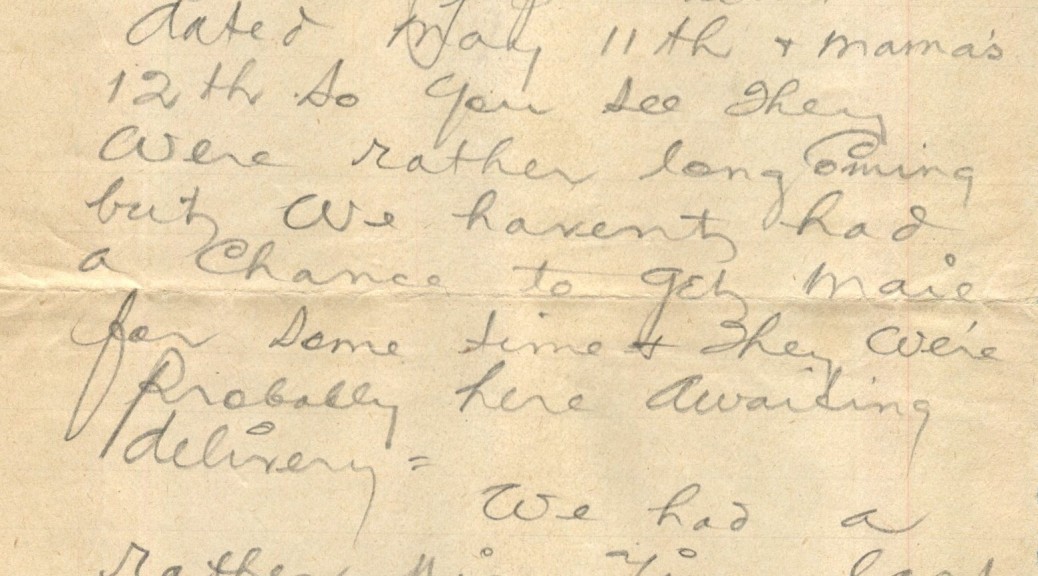 dated May 11th + mama's
12th so you see They
Were rather long Coming
but We havent had
a Chance to get mail
for Some time + They We're
Probably here Awaiting
delivery =
We had a
rather